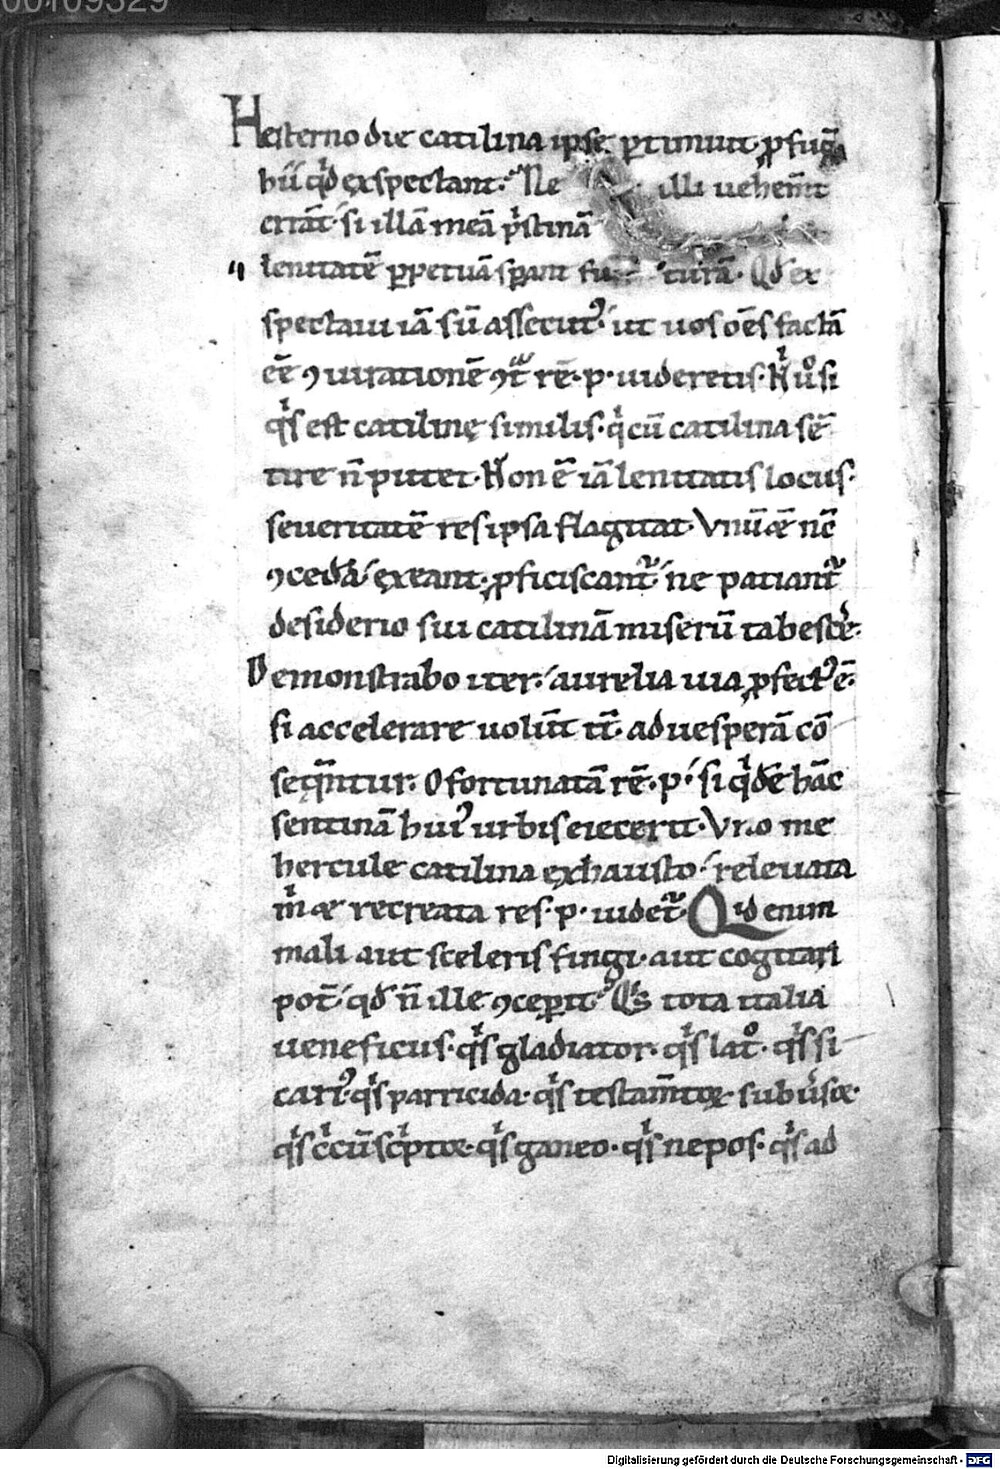 00109329
Hesterno die catilina ipse ꝑtimuit ꝓfug
hii qd̄ exspectant. Ne illi uehem̄t
errāt si illā meā p̄stinā
lenitatē ꝑpetuā sꝑant fu turā. Qd̄ ex
spectaui iā sū assecutꝰ ut uos oēs factā
eē ꝯiurationē ꝯt̄ rē .p. uideretis. N̄ uͦ si
qͥs est catilinę similis. qͥ cū catilina sē
tire n̄ putet. Non ē iā lenitatis locus.
seueritatē res ipsa flagitat. Vnū &̄ nc̄
ꝯcedā exeant. ꝓficiscant᷑ ne patiant᷑
desiderio sui catilinā miserū tabescẻ.
Demonstrabo iter. aurelia uia ꝓfectꝰ ē.
si accelerare uolūt. ad uesperā cō
seqn̄tur. O fortunatā rē .p. si qͥdē hāc
sentinā huiꝰ urbis eiecerit. Vno me
hercule catilina exhausto. releuata
m̄ & recreata res .p. uidet᷑. Qid enim
mali aut sceleris fingi. aut cogitari
pot̄ qd̄ n̄ ille ꝯceꝑit. Qͥs tota italia
ueneficus. qͥs gladiator. qͥs latͦ. qͥs si
cariꝰ. qͥs parricida. qͥs testam̄toꝝ subi͛soꝛ.
qͥs c̄cūsc̄ptoꝛ. qͥs ganeo. qͥs nepos. qͥs ad
Digitalisierung gefördert durch die Deutsche Forschungsgemeinschaft - DFG